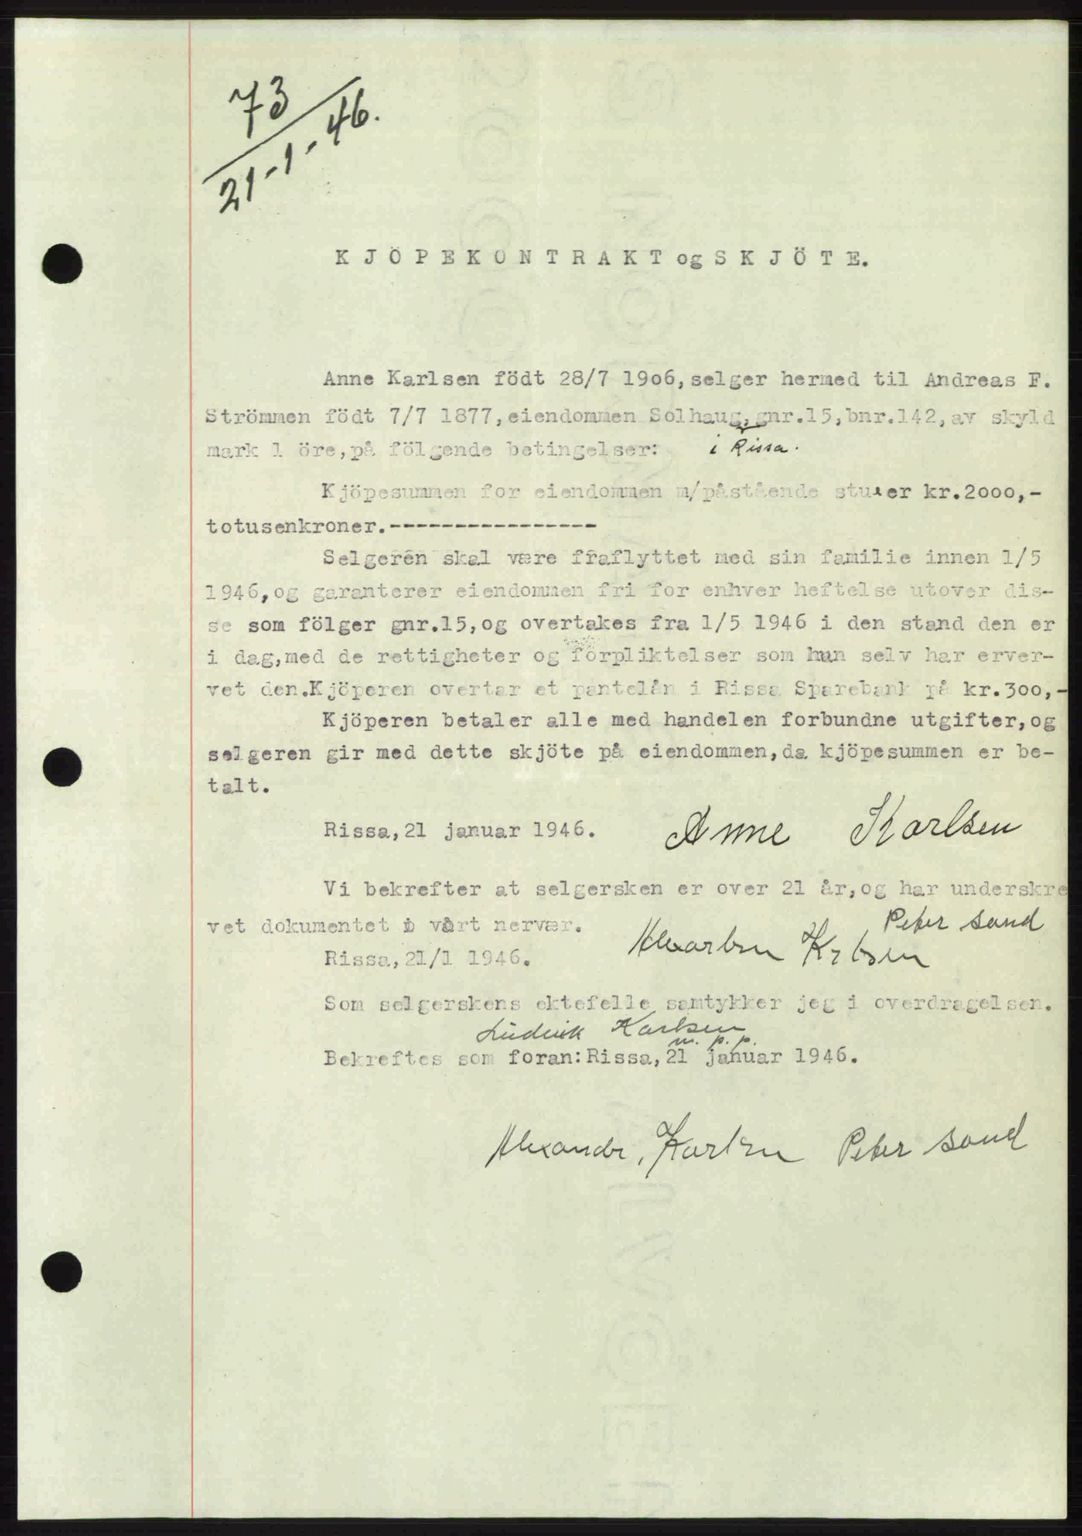 73
21-1-46.
KJÖPEKONTRAKT og SKJÖTE.
Anne Karlsen födt 28/7 19o6,selger hermed til Andreas F.
Strömmen födt 7/7 1877,eiendommen Solhaug,gnr.15,bnr.142,av skyld
mark 1 öre,på fölgende betingelser: i Rissa.
Kjöpesummen for eiendommen m/påstående stuer kr.2ooo,-
totusenkroner.----------------
Selgeren skal være fraflyttet med sin familie innen 1/5
1946,og garanterer eiendommen fri for enhver heftelse utover dis-
se som fölger gnr.15,og overtakes fra 1/5 1946 i den stand den er
i dag,med de rettigheter og forpliktelser som hun selv har erver-
vet den.Kjöperen overtar et pantelån i Rissa Sparebank på kr.3oo,-
Kjöperen betaler alle med handelen forbundne utgifter,og
selgeren gir med dette skjöte på eiendommen,da kjöpesummen er be-
talt.
Rissa,21 januar 1946. Anne Karlsen
Vi bekrefter at selgersken er over 21 år,og har underskre
vet dokumentet i vårt nervær. Peter Sand
Rissa,21/1 1946.
Som selgerskens ektefelle samtykker jeg i overdragelsen.
Ludvik Karlsen
m. p. p.
Bekreftes som foran:Rissa,21 januar 1946.
Alexander Karlsen Peter Sand